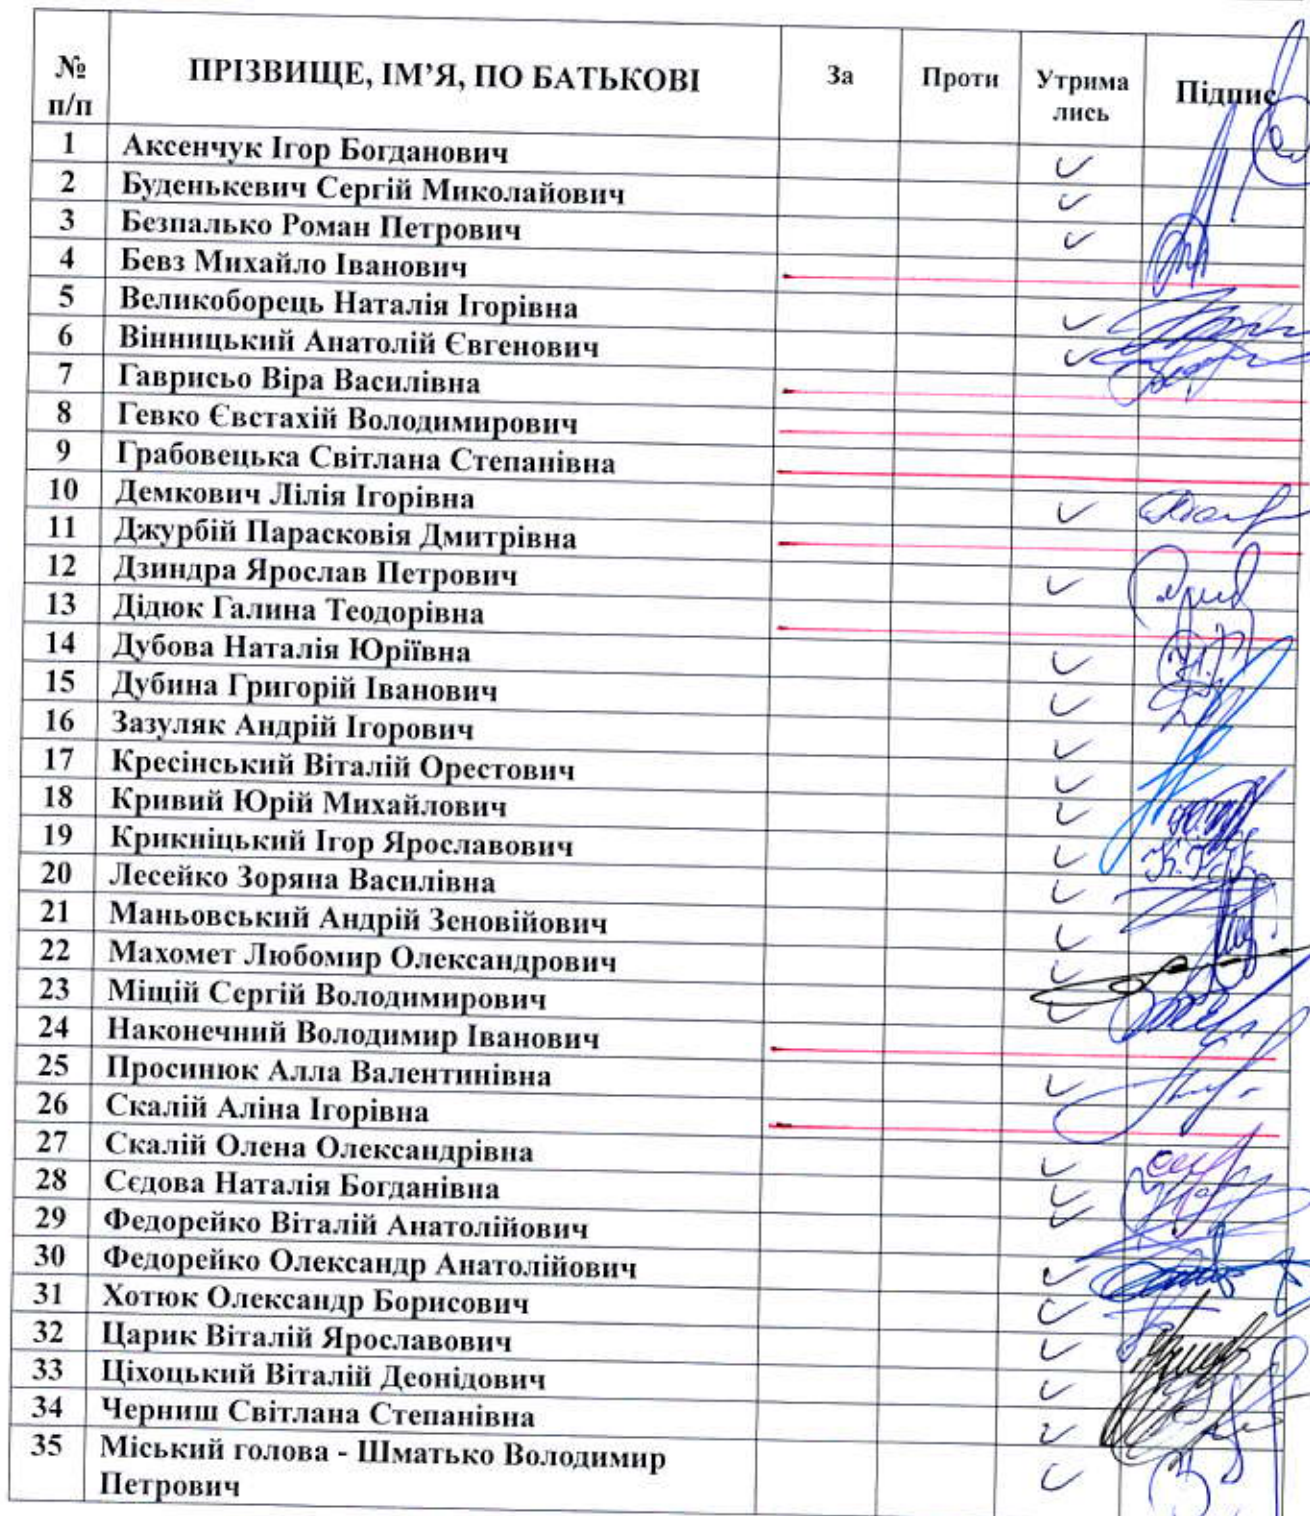 № п/п ПРІЗВИЩЕ, ІМ’Я, ПО БАТЬКОВІ За Проти Утрима лись Підпис
1 Аксенчук Ігор Богданович
2 Буденькевич Сергій Миколайович
3 Безпалько Роман Петрович
4 Бевз Михайло Іванович
5 Великоборець Наталія Ігорівна
6 Вінницький Анатолій Євгенович
7 Гаврисьо Віра Василівна
8 Гевко Євстахій Володимирович
9 Грабовецька Світлана Степанівна
10 Демкович Лілія Ігорівна
11 Джурбій Парасковія Дмитрівна
12 Дзиндра Ярослав Петрович
13 Дідюк Галина Теодорівна
14 Дубова Наталія Юріївна
15 Дубина Григорій Іванович
16 Зазуляк Андрій Ігорович
17 Кресінський Віталій Орестович
18 Кривий Юрій Михайлович
19 Крикніцький Ігор Ярославович
20 Лесейко Зоряна Василівна
21 Маньовський Андрій Зеновійович
22 Махомет Любомир Олександрович
23 Міщій Сергій Володимирович
24 Наконечний Володимир Іванович
25 Просинюк Алла Валентинівна
26 Скалій Аліна Ігорівна
27 Скалій Олена Олександрівна
28 Сєдова Наталія Богданівна
29 Федорейко Віталій Анатолійович
30 Федорейко Олександр Анатолійович
31 Хотюк Олександр Борисович
32 Царик Віталій Ярославович
33 Ціхоцький Віталій Деонідович
34 Черниш Світлана Степанівна
35 Міський голова - Шматько Володимир
Петрович